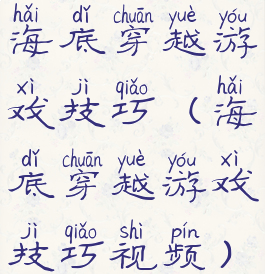 hǎi dǐ chuān yuè yóu
海底穿越游
xì jì qiǎo hǎi
戏技巧（海
dǐ chuān yuè yóu xì
底穿越游戏
jì qiǎo shì pín
技巧视频）